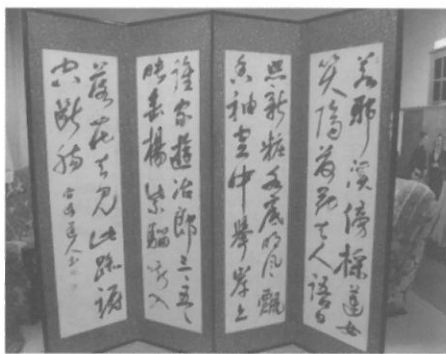 若耶溪傍採蓮女
笑隔荷花共人語日
照新粧水底明風飄
香袖空中舉岸上
誰家遊冶郎三々五々
映垂楊紫騮嘶入
落花去見此踟躕
空斷腸